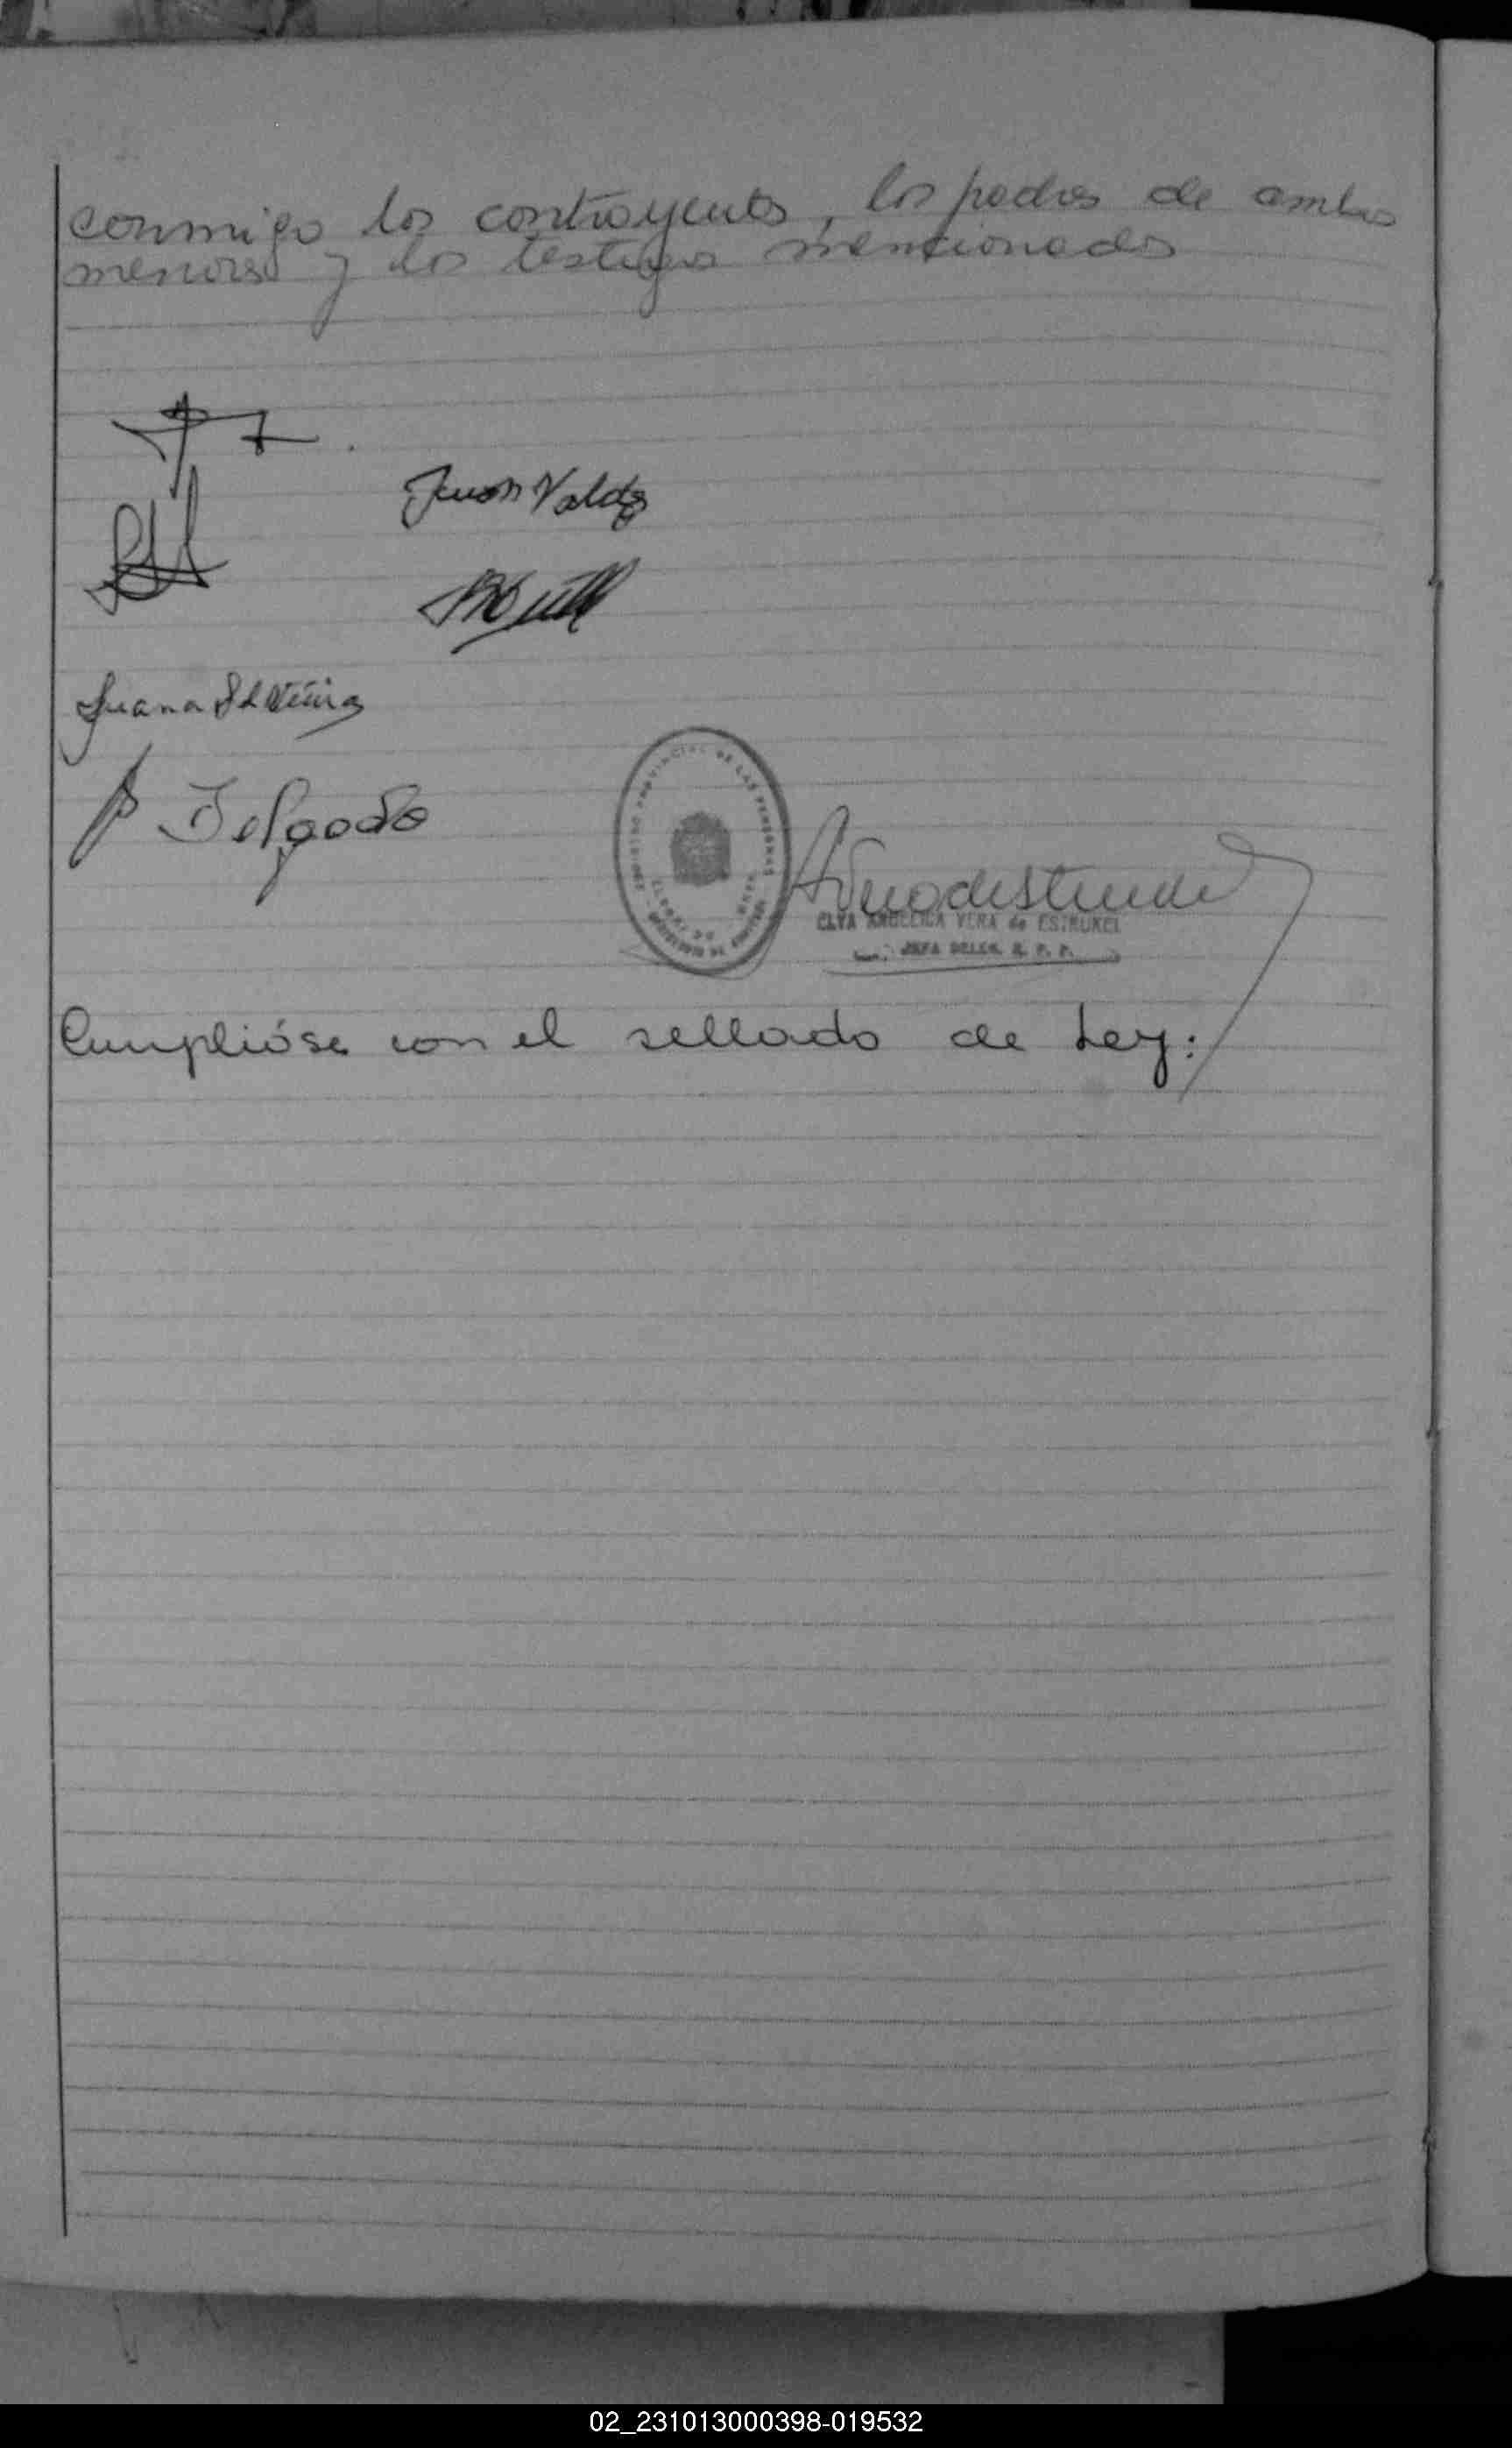 conmigo los contrayentes, los padres de ambos
menores y los testigos mencionados
Juan Valdez
Juana
Delgado
REGISTRO PROVINCIAL DE LAS PERSONAS
ELVA ANGELICA VERA de ESTRUKEL
JEFA DELEG. R. P. P.
Cumplióse con el sellado de Ley:
02_231013000398-019532